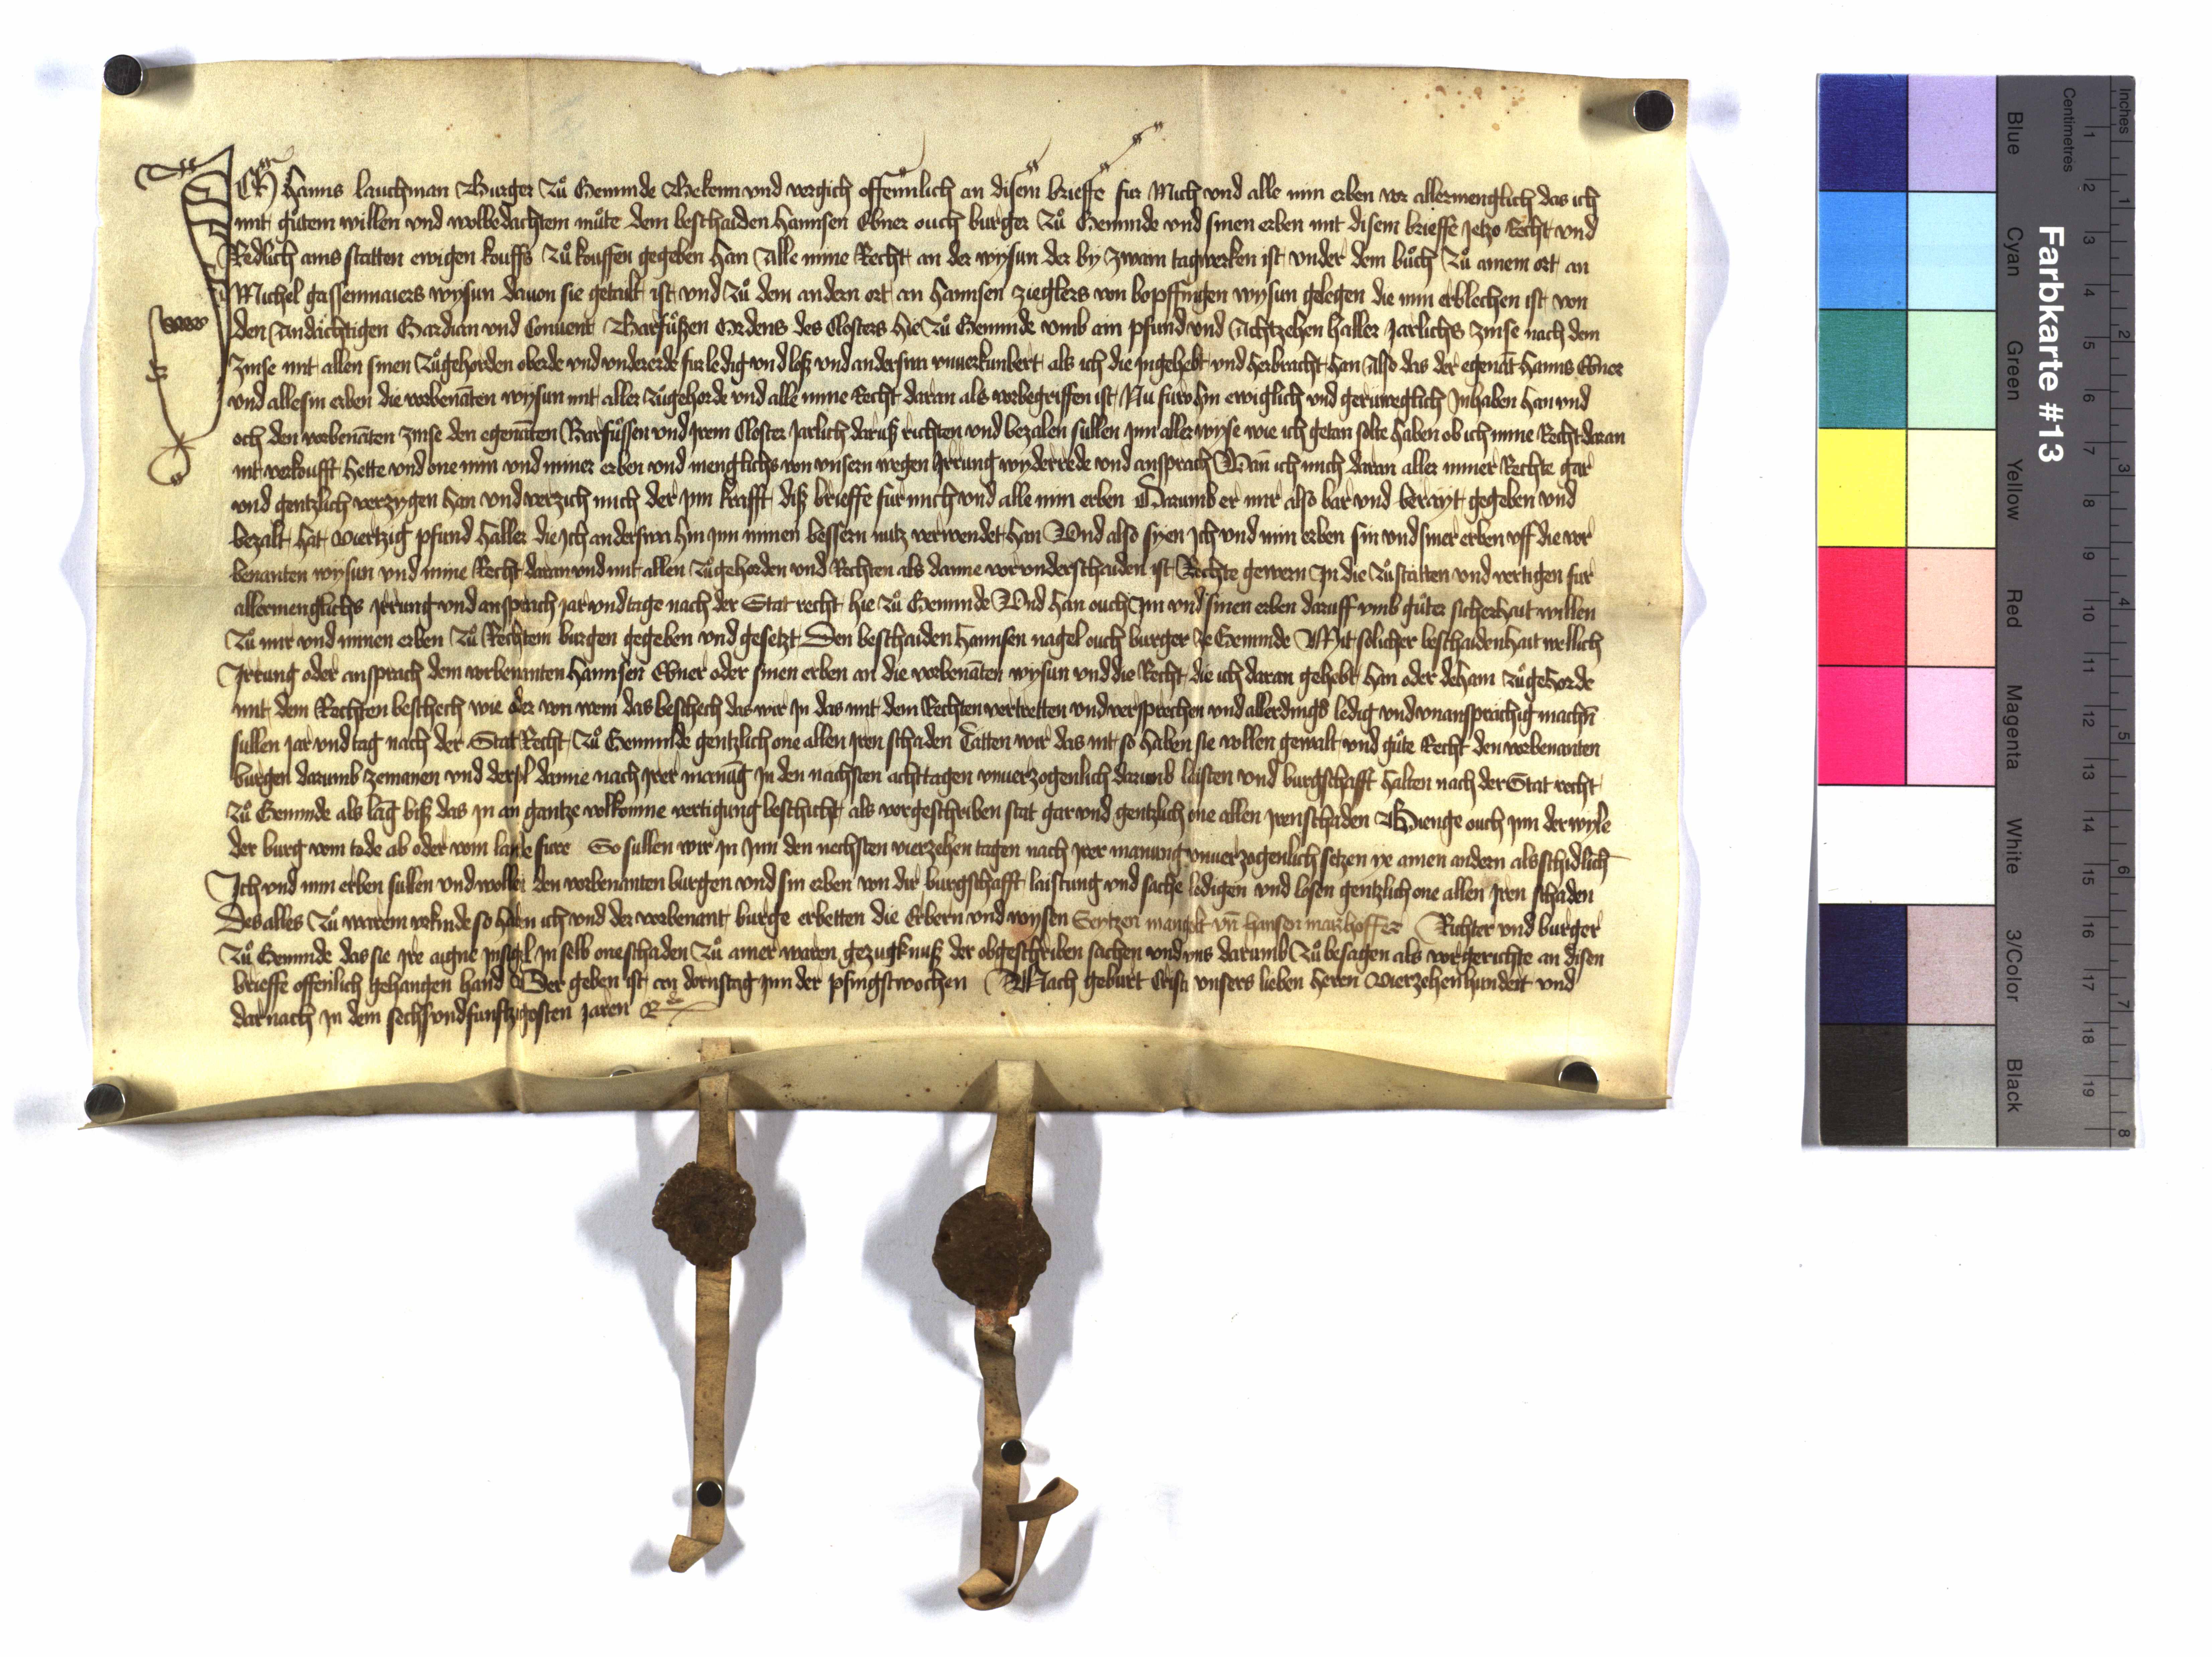 ICh Hanns lauchman Burger Zů Gemúnde Bekenn und vergich offennlich an disem brieffe fur Mich und alle min erben vor allermenglich das ich
mit gůtem willen und wolbedachtem můte dem beschaiden Hannsen Ebner ouch burger Zů Gemúnde und sinen erben mit disem brieffe jetzo Recht und
Redlich ains statten ewigen kouffs Zů kouffen gegeben han Alle mine Recht an der wysun der by zwain tagwerken ist under dem bůch Zů ainem ort an
Michel gassenmaiers wysun davon sie getailt ist und Zů dem andern ort an Hannsen zieglers von bopffingen wysun gelegen die min erblechen ist von
den Andächtigen Gardian und Convent Barfůßen Ordens des Closters hie Zů Gemúnde umb ain pfund und Achtzehen haller Jarlichs Zinse nach dem
Zinse mit allen sinen Zůgehorden oberde und undererde fur ledig und loß und anderswa unverkunbert als ich die jngehebt und herbracht han Also das der egenāt Hanns Ebner
und alle sin erben die vorbenāten wysun mit aller Zůgehorde und alle mine Recht daran als vorbegriffen ist Nu furohin ewiglich und gerüweglich Jnhaben han und
och den vorbenāten Zinse den egenāten Barfůssen und jrem Closter Jarlich daruß richten und bezalen sullen jnn aller wyse wie ich getan solte haben ob ich mine Recht daran
nit verkoufft hette und one min und miner erben und menglichs von unsern wegen jrrung wyderrede und ansprach Wañ ich mich daran aller miner Rechte gar
und gentzlich verzygen han und verzich mich der jnn krafft diß brieffs fur mich und alle min erben Darumb er mir also bar und berayt gegeben und
bezalt hat Viertzig pfund haller die Jch anderswa hin jnn minen bessern nutz verwendet han Und also syen Jch und min erben sin und siner erben uff die vor
benanten wysun und mine Recht daran und mit allen Zůgehorden und Rechten als danne vor underschaiden ist Rechte gewern Jn die Zůstatten und vertigen fur
allermenglichs jrrung und ansprach jar und tage nach der Stat recht hie Zů Gemúnde Und han ouch Jm und sinen erben daruff umb gůter sicherhait willen
Zů mir und minen erben Zů Rechtem burgen gegeben und gesetzt Den beschaiden Hannsen nagel ouch burger Ze Gemúnde Mit solicher beschaidenhait wellich
Jrrung oder ansprach dem vorbenanten Hannsen Ebner oder sinen erben an die vorbenāten wysun und die Recht die ich daran gehebt han oder dehain Zůgehorde
mit dem Rechten beschech wie oder von wem das beschech das wir Jn das mit dem Rechten vertretten und versprechen und allerdings ledig und unansprächig machñ
sullen jar und tag nach der Stat Recht Zů Gemúnde gentzlich one allen jren schaden Tätten wir das nit so haben sie vollen gewalt und gůte Recht den vorbenanten
burgen darumb zemanen und der sol danne nach jrer manūg Jn den nächsten acht tagen unverzogenlich darumb laisten und burgschafft halten nach der Stat recht
Zů Gemúnde als lāg biß das jn ain gantze volkomne vertigung beschicht als vorgeschriben stat gar und gentzlich one allen jren schaden Gienge ouch jnn der wyle
der burg vom tode ab oder vom lande fure So sullen wir jn Jnn den nechsten vierzehen tagen nach jrer manung unverzogenlich setzen ye ainen andern als schidlich
Jch und min erben sullen und wollen den vorbenanten burgen und sin erben von dir burgschafft laistung und sache ledigen und losen gentzlich one allen Jren schaden
Des alles Zů warem urkunde so haben ich und der vorbenant burge erbetten die Erbern und wysen Seytzen mangolt uñ hansen marzhoffer Richter und burger
Zů Gemúnde das sie jre aigne jnsigel jn selb one schaden Zů ainer waren gezugknuß der obgeschriben sachen und uns darumb Zů besagen als vor gerichte an disen
brieffe offenlich gehangen hand Der geben ist an dornstag jnn der pfingstwochen Nach geburt Cristi unsers lieben herren Vierzehenhundert und
darnach jn dem sechsundfunftzigosten jaren
Farbkarte #13
Blue Cyan Green Yellow Red Magenta White 3/Color Black
Centimetres 1 2 3 4 5 6 7 8 9 10 11 12 13 14 15 16 17 18 19
Inches 1 2 3 4 5 6 7 8